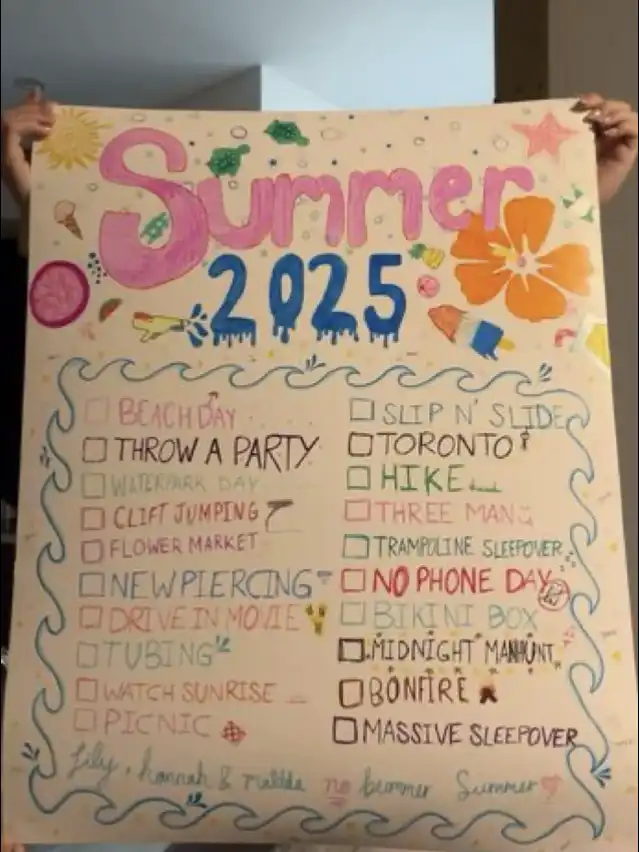 Summer
2025
BEACH DAY
THROW A PARTY
WATERPARK DAY
CLIFT JUMPING
FLOWER MARKET
NEW PIERCING
DRIVE IN MOVIE
TUBING
WATCH SUNRISE
PICNIC
SLIP N' SLIDE
TORONTO
HIKE
THREE MAN
TRAMPOLINE SLEEPOVER
NO PHONE DAY
BIKINI BOX
MIDNIGHT MANHUNT
BONFIRE
MASSIVE SLEEPOVER
Lily, hannah & no bummer Summer